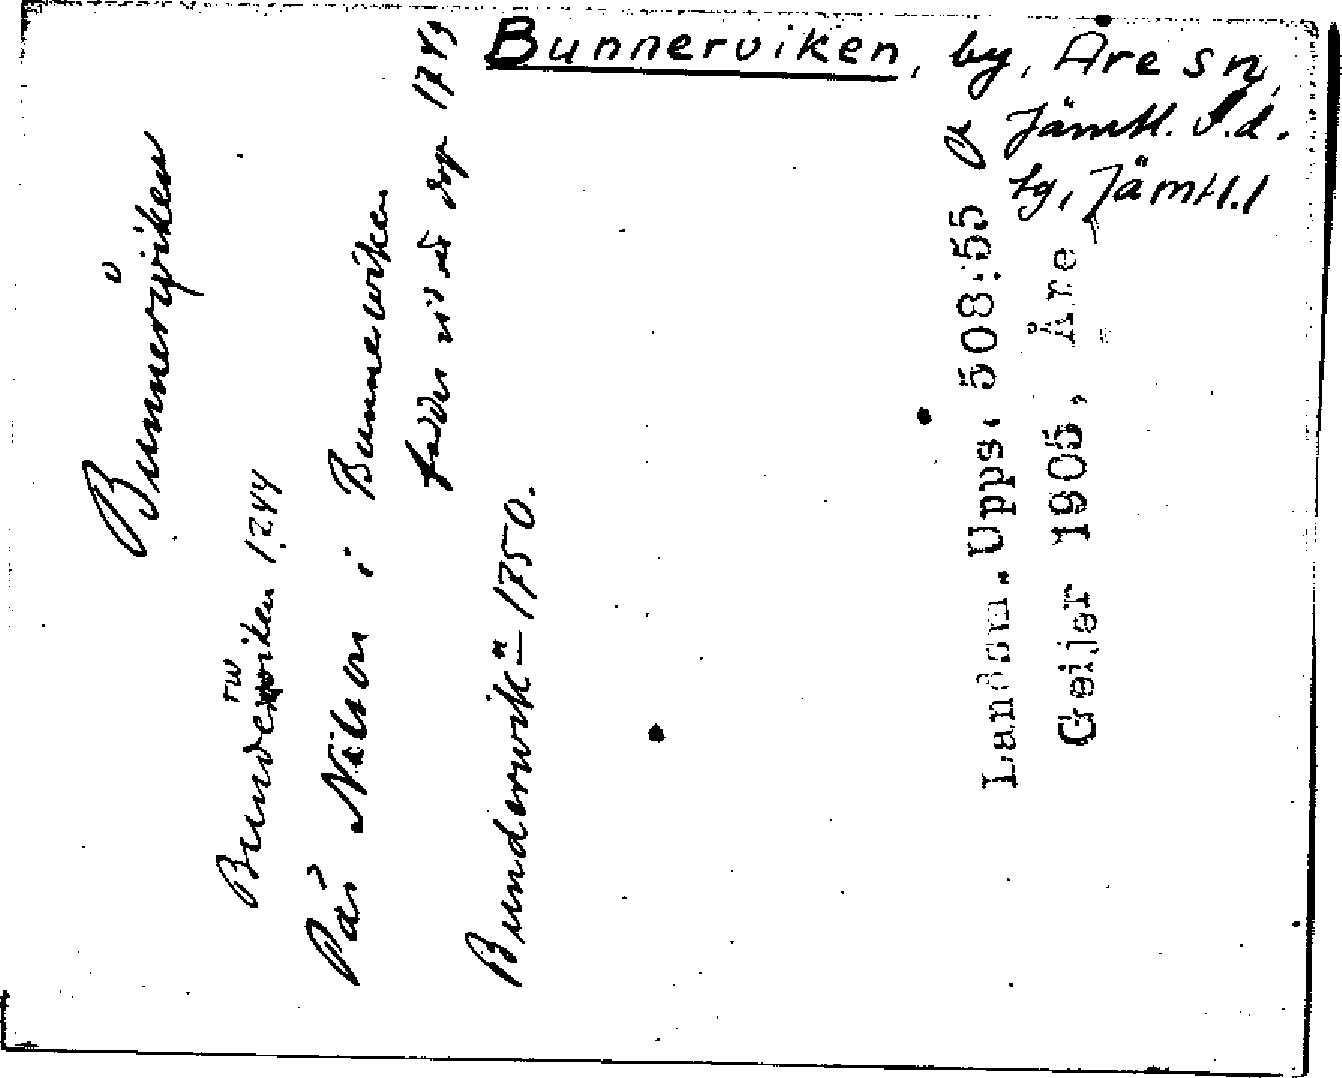 Bunnerviken, by, Åre sn,
Jämtl. v.d.
tg, Jämtl.l
Bunnerviken
Bunderwiken 1744
Pär Nilson i Bunnewiken
fadder vid dop 1749
Bunderwik — 1750.
Landsm. Upps. 508:55
Geijer 1905, Åre